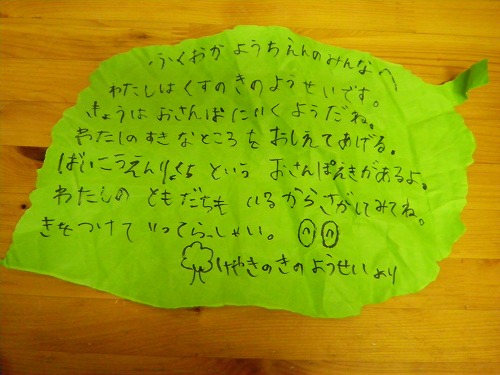 ふくおかようちえんのみんなへ
わたしはくすのきのようせいです。
きょうは おさんぽにいくようだね。
わたしのすきなところを おしえてあげる。
ばいこうえんりょくち という おさんぽえきがあるよ。
わたしの ともだちも いるからさがしてみてね。
きをつけて いってらっしゃい。
けやきのきのようせいより